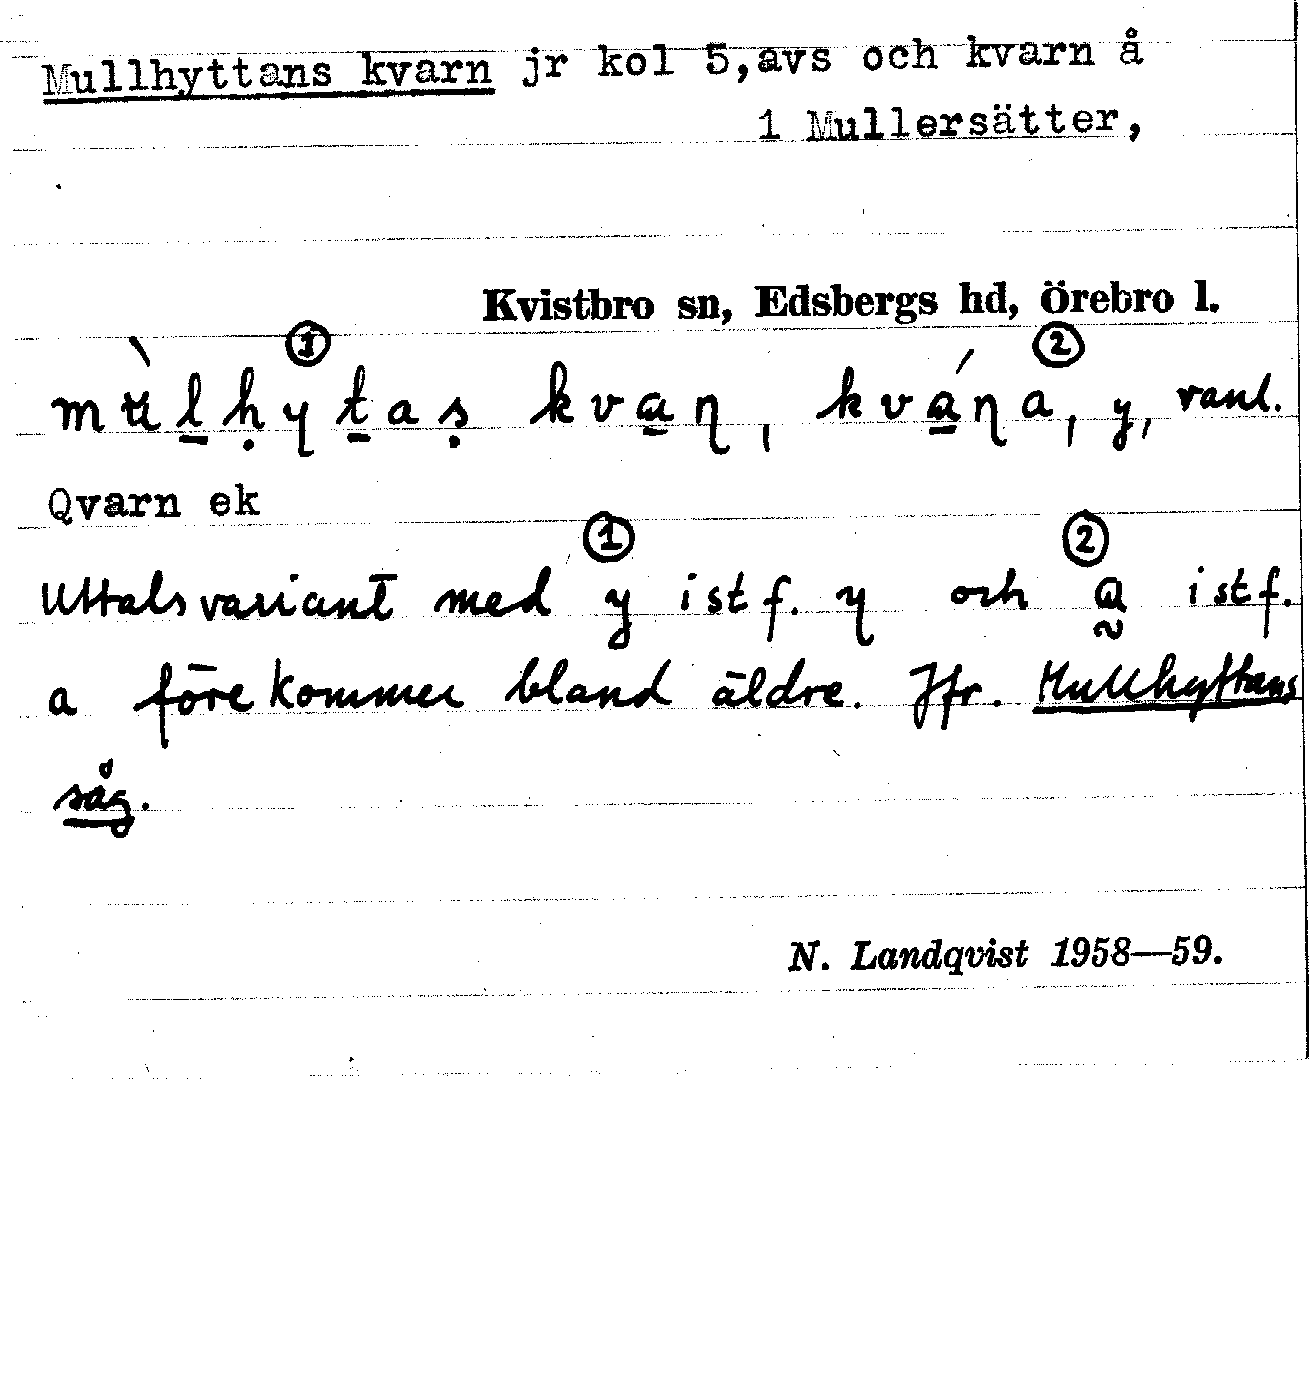 Mullhyttans kvarn jr kol 5,avs och kvarn å
1 Mullersätter,
Kvistbro sn, Edsbergs hd, Örebro l.
① ②
mùl̠ḥyt̠aṣ kva̠ɳ, kvá̠ɳa, y, vanl.
Qvarn ek
① ②
Uttalsvariant med y istf. y och a̰ istf.
a förekommer bland äldre. Jfr. Mullhyttans
såg.
N. Landqvist 1958—59.